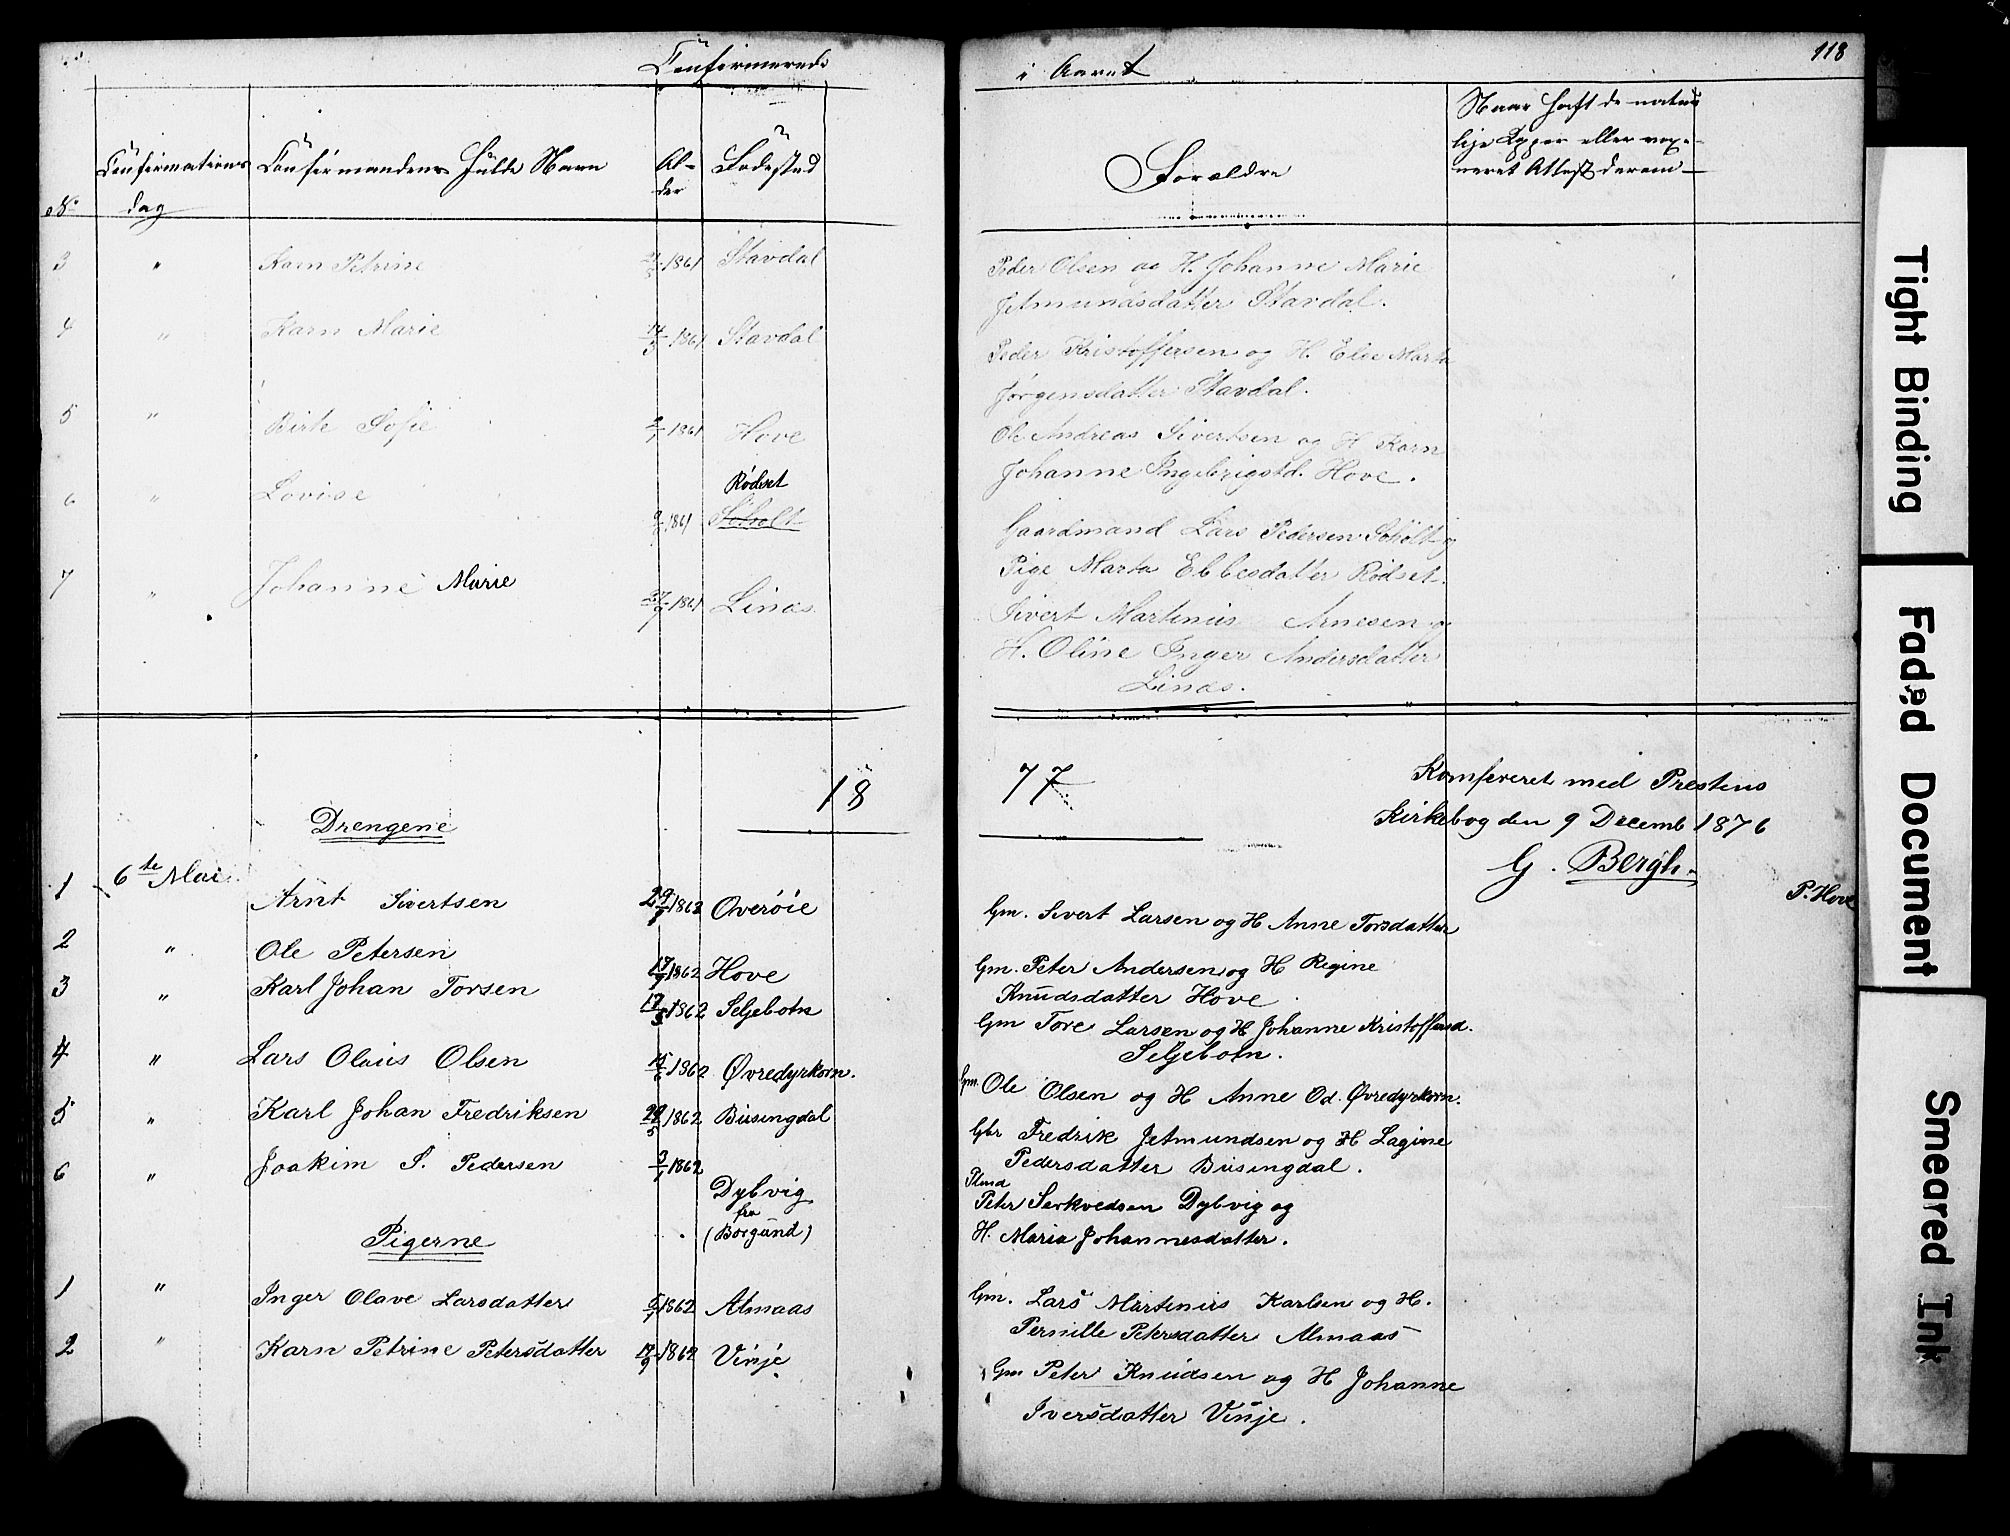 Confirmerede
i Aaret
118
No
Confirmations
dag
Confirmandens fulde Navn
Al-
der
Fødested
Forældre
Naar haft de natur
lige Kopper eller vax-
neret Attest derom
3 " Karn Petrine 1861 Stavdal
Peder Olsen og H. Johanne Marie
Jetmundsdatter Stavdal.
4 " Karn Marie 14/3 1861 Stavdal
Peder Kristoffersen og H. Else Marta
Jørgensdatter Stavdal.
5 " Birte Sofie 1861 Hove
Ole Andreas Sivertsen og H Karn
Johanne Ingebrigstd. Hove.
6 " Lovise 1861 Rødset
Søholt
Gaardmand Lars Pedersen Søholt og
Pige Marta Ebbesdatter Rødset.
7 " Johanne Marie 27/9 1861 Linæs
Sivert Martinus Arnesen og
H. Oline Inger Andersdatter
Linæs.
18
77
Komfereret med Prestens
Kirkebog den 9 Decemb 1876
G. Bergh.
P. Hove
Drengene
1 6te Mai Arnt Sivertsen 29/7 1862 Overøie
Gm. Sivert Larsen og H Anne Torsdatter
2 " Ole Petersen 17/9 1862 Hove
Gm. Peter Andersen og H Regine
Knudsdatter Hove
3 " Karl Johan Torsen 17/3 1862 Seljebotn
Gm Tore Larsen og H Johanne Kristoffersd.
Seljebotn.
4 " Lars Olaus Olsen 15/6 1862 Øvredyrkorn.
Gm. Ole Olsen og H Anne Od. Øvredyrkorn.
5 " Karl Johan Fredriksen 29/5 1862 Busingdal
Gbr Fredrik Jetmundsen og H Lagine
Pedersdatter Busingdal.
6 " Joakim S. Pedersen 3/7 1862 Dybvig
fra
(Borgund)
Plmd
Peter Serkvedsen Dybvig og
H. Maria Johannesdatter.
Pigerne
1 " Inger Olave Larsdatter 5/7 1862 Almaas
Gm. Lars Martinus Karlsen og H.
Pernille Petersdatter Almaas
2 " Karn Petrine Petersdatter 17/9 1862 Vinje
Gm Peter Knudsen og H Johanne
Iversdatter Vinje.
Tight Binding
Faded Document
Smeared Ink